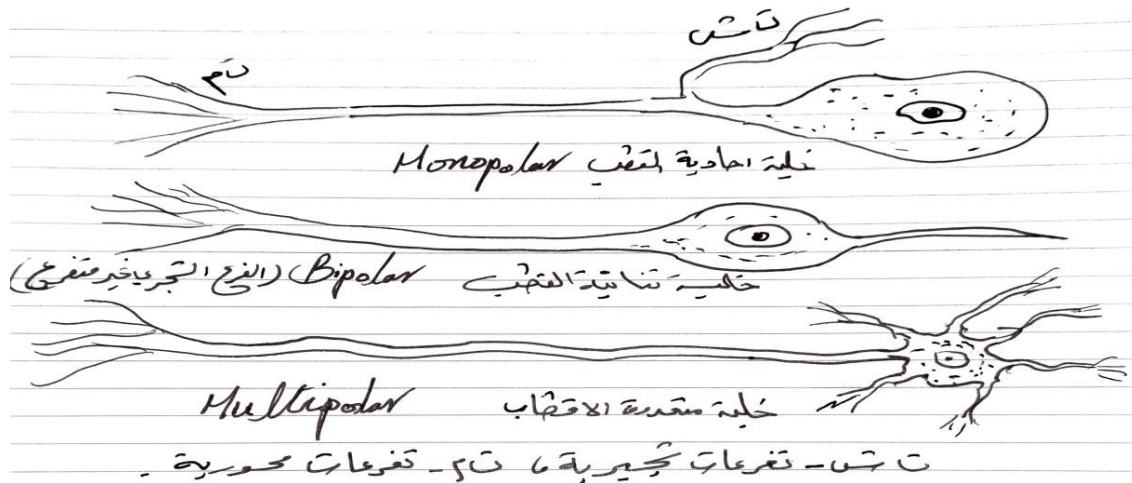 ت ش
ت م
خلية احادية القطب Monopolar
خلية ثنائية القطب Bipolar (الفرع الشجري غير متفرع)
خلية متعددة الاقطاب Multipolar
ت ش - تفرعات شجيرية، ت م - تفرعات محورية.